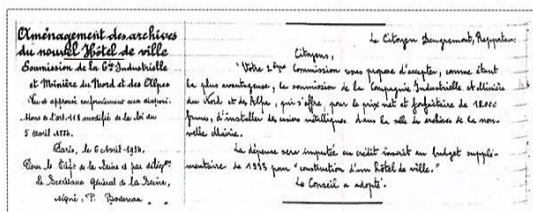 Aménagement des archives
du nouvel Hôtel de ville
Soumission de la Cie Industrielle
et Minière du Nord et des Alpes
Vu et approuvé conformément aux disposi-
tions de l'art. 115 modifié de la loi du
5 Avril 1884.
Paris, le 6 Avril 1934.
Pour le Préfet de la Seine et par délégon.
Le Secrétaire Général de la Seine,
signé :
Le Citoyen Dengremont, Rapporteur.
Citoyens,
"Votre 2ème Commission vous propose d'accepter, comme étant
la plus avantageuse, la soumission de la Compagnie Industrielle et Minière
du Nord et des Alpes, qui s'offre, pour le prix net et forfaitaire de 12.000
francs, d'installer des casiers métalliques dans la salle des archives de la nou-
velle Mairie.
La dépense sera imputée au crédit inscrit au budget supplé-
mentaire de 1933 pour "construction d'un hôtel de ville."
Le Conseil a adopté.